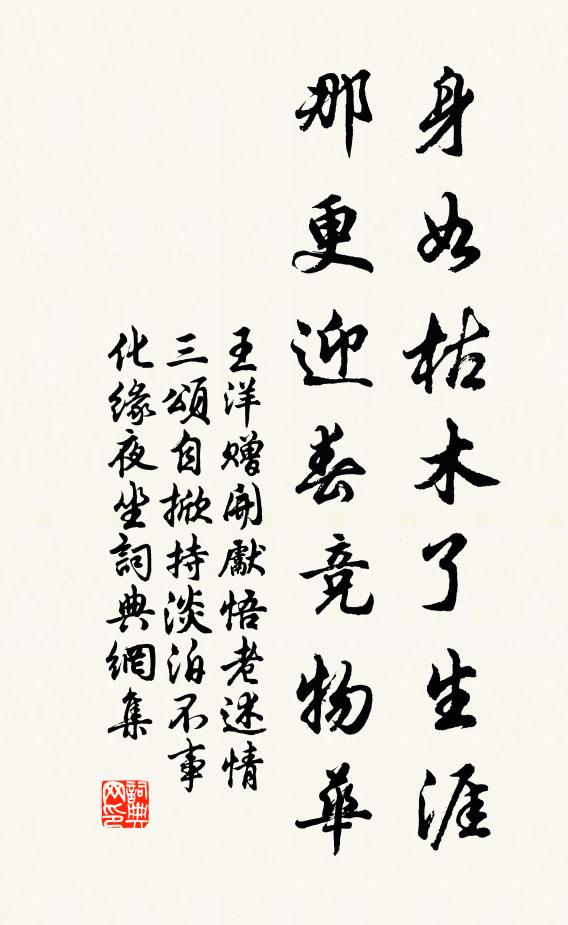 身如枯木了生涯
那更迎春竞物华
王洋赠開獻悟老述情
三頌自掀持淡泊不事
化緣夜坐詞典網集
詞典
网印